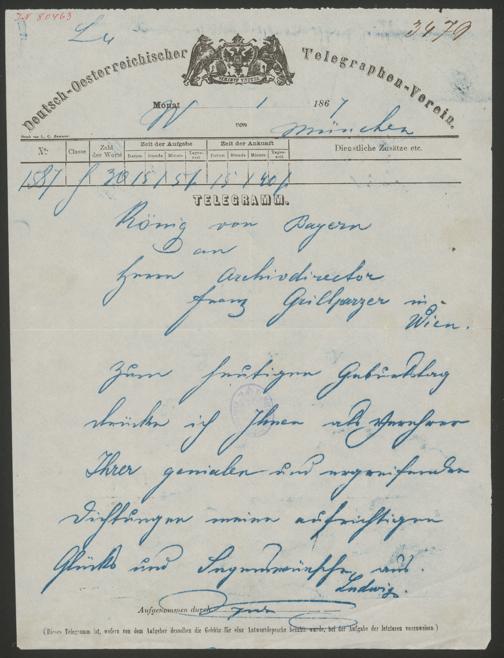 I.N 80463
3479
Deutsch-Oesterreichischer Telegraphen-Verein.
Monat 1 1867
von München
Nr. Classe Zahl der Worte Zeit der Aufgabe Zeit der Ankunft Dienstliche Zusätze etc.
Datum Stunde Minute Tageszeit Datum Stunde Minute Tageszeit
1587 30 15 15
TELEGRAMM.
König von Bayern
an
Herrn Archivdirector
Franz Grillparzer in
Wien.
Zum heutigen Geburtstag
drücke ich Ihnen als Verehrer
Ihrer genialen und ergreifenden
Dichtungen meine aufrichtigen
Glücks und Segenswünsche aus.
Ludwig.
Aufgenommen durch
(Dieses Telegramm ist, wofern von dem Aufgeber desselben die Gebühr für eine Antwortsdepesche bezahlt wurde, bei der Aufgabe der letzteren vorzuweisen.)